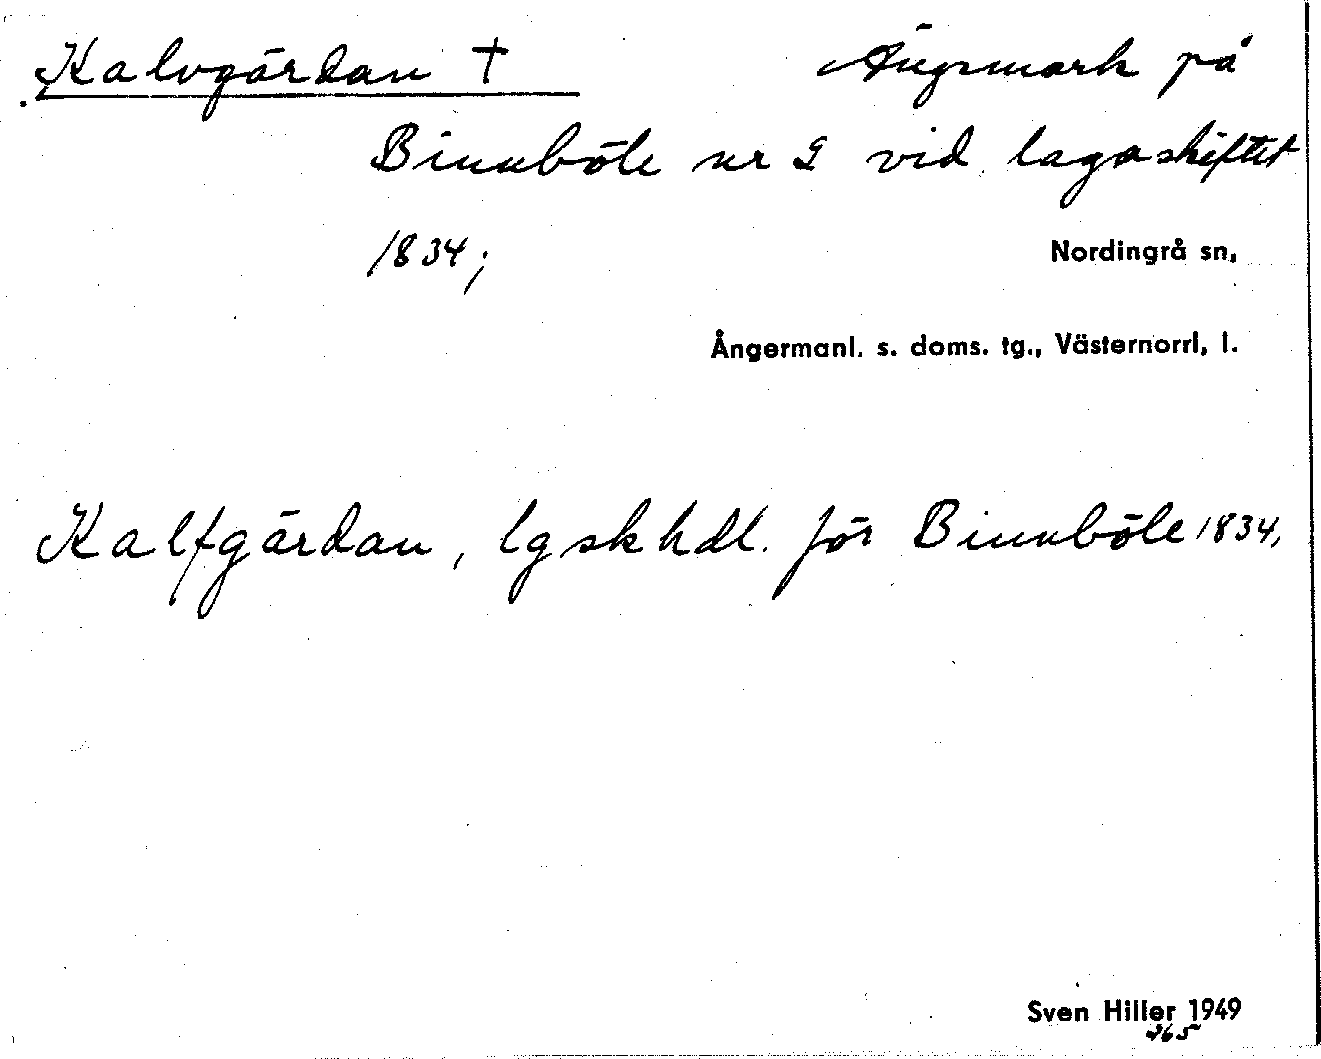 Kalvgärdan †
Ängsmark på
Binnböle nr 2 vid lagaskiftet
1834;
Nordingrå sn,
Ångermanl. s. doms. tg., Västernorrl, l.
Kalfgärdan, lgskhdl. för Binnböle 1834,
Sven Hiller 1949